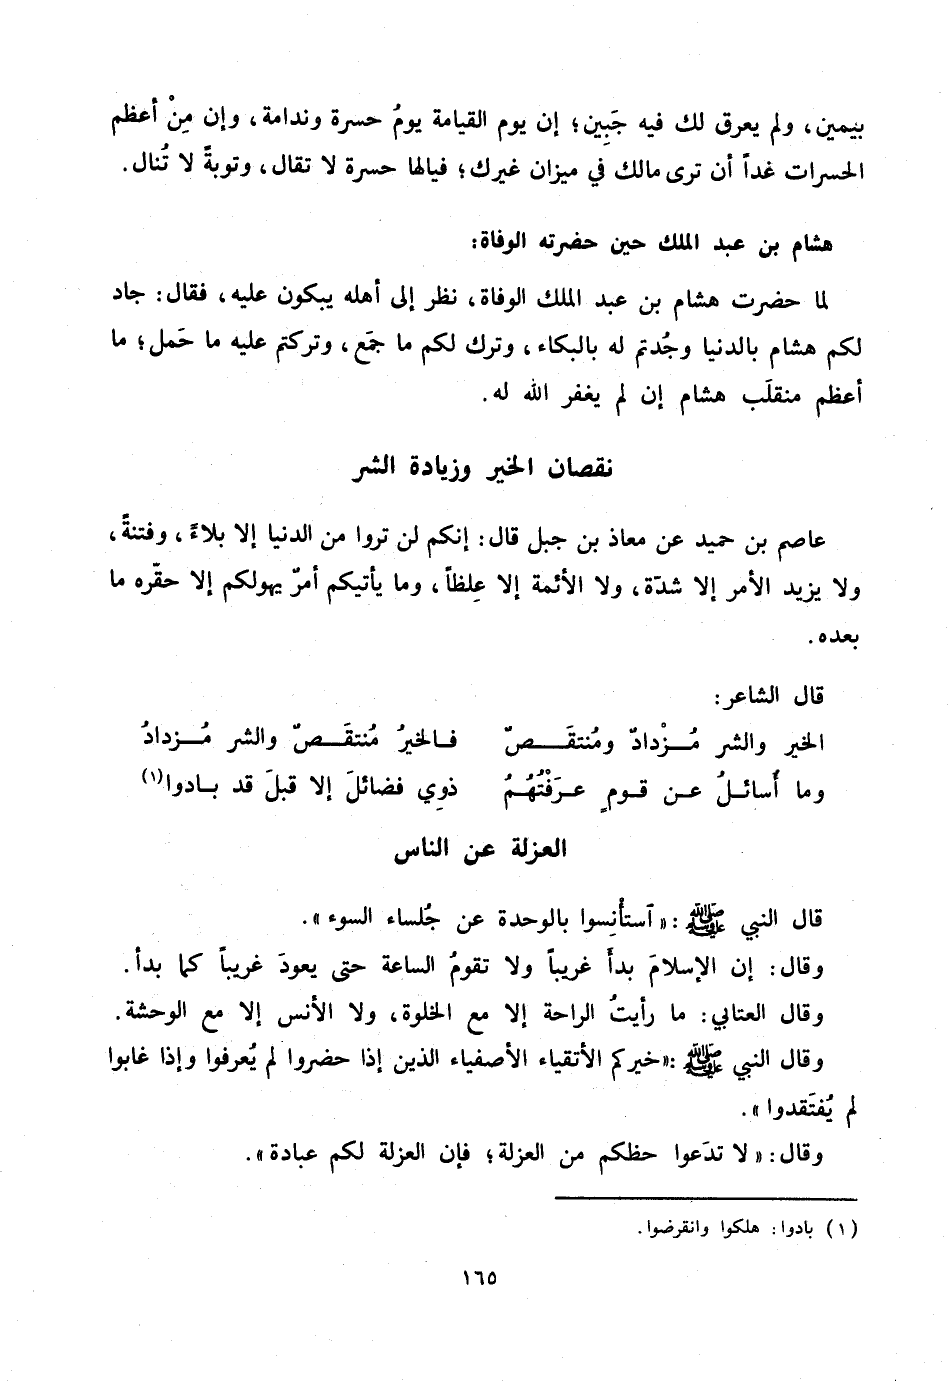 بيمين، ولم يعرق لك فيه جَبِين؛ إن يوم القيامة يومُ حسرة وندامة، وإن مِنْ أعظم
الحسرات غداً أن ترى مالك في ميزان غيرك؛ فيالها حسرة لا تقال، وتوبةً لا تُنال.
هشام بن عبد الملك حين حضرته الوفاة:
لما حضرت هشام بن عبد الملك الوفاة، نظر إلى أهله يبكون عليه، فقال: جاد
لكم هشام بالدنيا وجُدتم له بالبكاء، وترك لكم ما جمَع، وتركتم عليه ما حَمل؛ ما
أعظم منقلَب هشام إن لم يغفر الله له.
نقصان الخير وزيادة الشر
عاصم بن حميد عن معاذ بن جبل قال: إنكم لن تروا من الدنيا إلا بلاءً، وفتنةً،
ولا يزيد الأمر إلا شدّة، ولا الأئمة إلا عِلظاً، وما يأتيكم أمرٌ يهولكم إلا حقّره ما
بعده.
قال الشاعر:
الخير والشر مُـزْدادٌ ومُنتقَـصٌ فـالخيرُ مُنتقَـصٌ والشر مُـزدادُ
وما أُسائـلُ عـن قـومٍ عـرَفْتُهُـمُ ذوِي فضائلَ إلا قبلَ قد بـادوا(١)
العزلة عن الناس
قال النبي ﷺ: «آستأْنِسوا بالوحدة عن جُلساء السوء».
وقال: إن الإسلامَ بدأَ غريباً ولا تقومُ الساعة حتى يعودَ غريباً كما بدأ.
وقال العتابي: ما رأيتُ الراحة إلا مع الخلوة، ولا الأنس إلا مع الوحشة.
وقال النبي ﷺ: «خيركم الأتقياء الأصفياء الذين إذا حضروا لم يُعرفوا وإذا غابوا
لم يُفتَقدوا».
وقال: «لا تدَعوا حظكم من العزلة؛ فإن العزلة لكم عبادة».
(١) بادوا: هلكوا وانقرضوا.
١٦٥